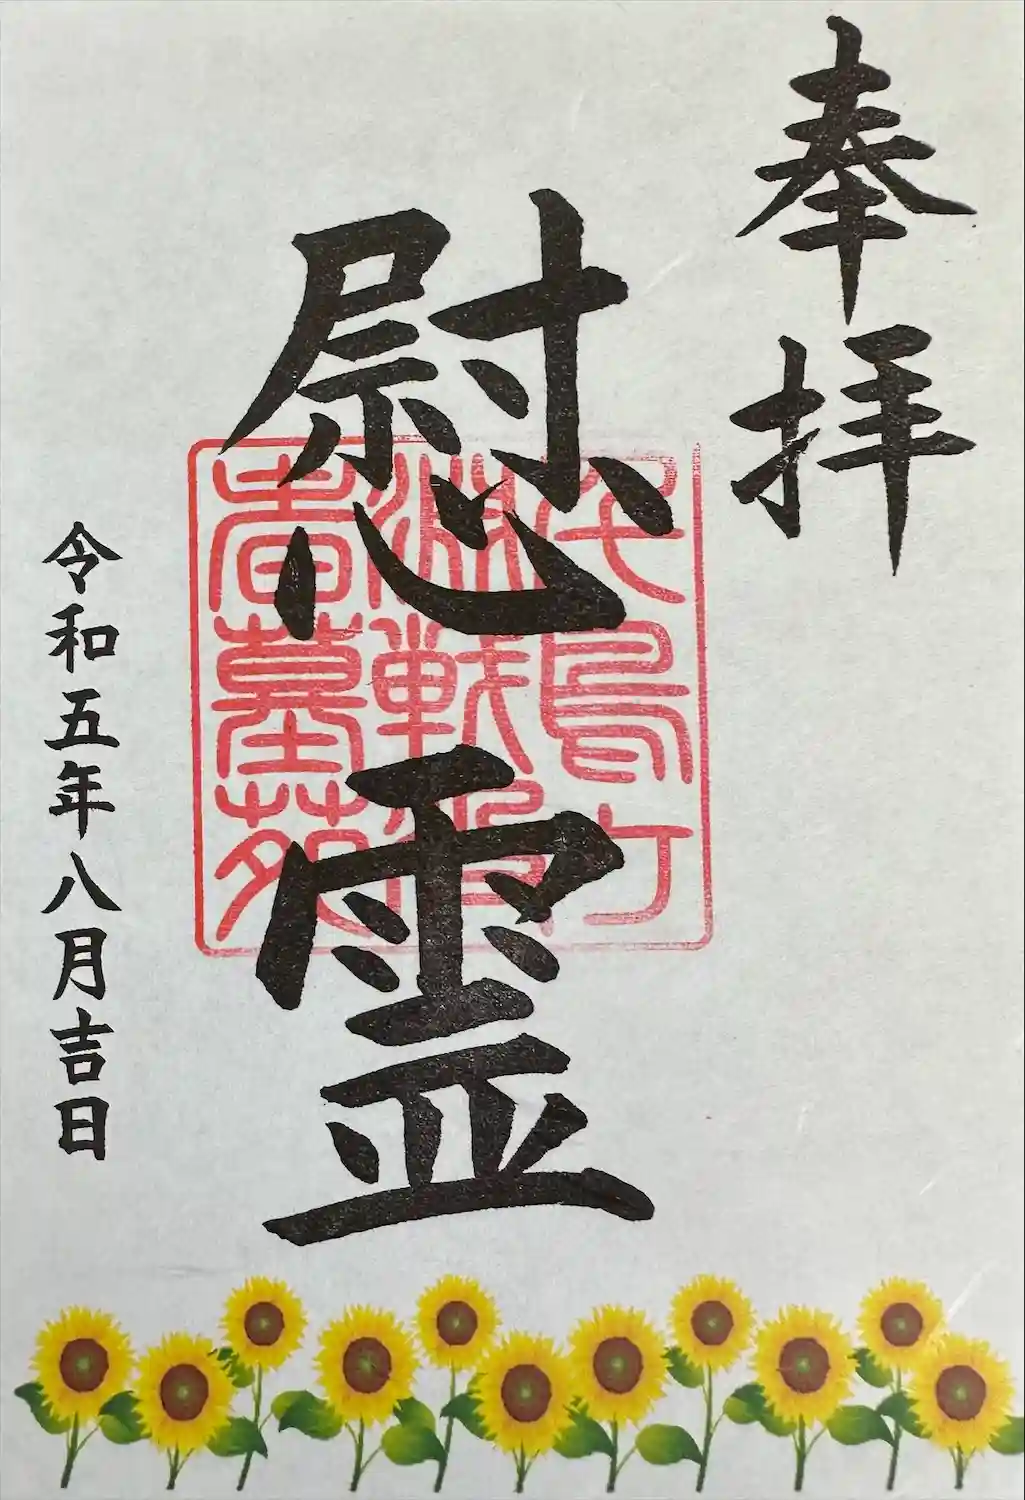 奉拝
慰霊
千鳥ケ
淵戦没
者墓苑
令和五年八月吉日